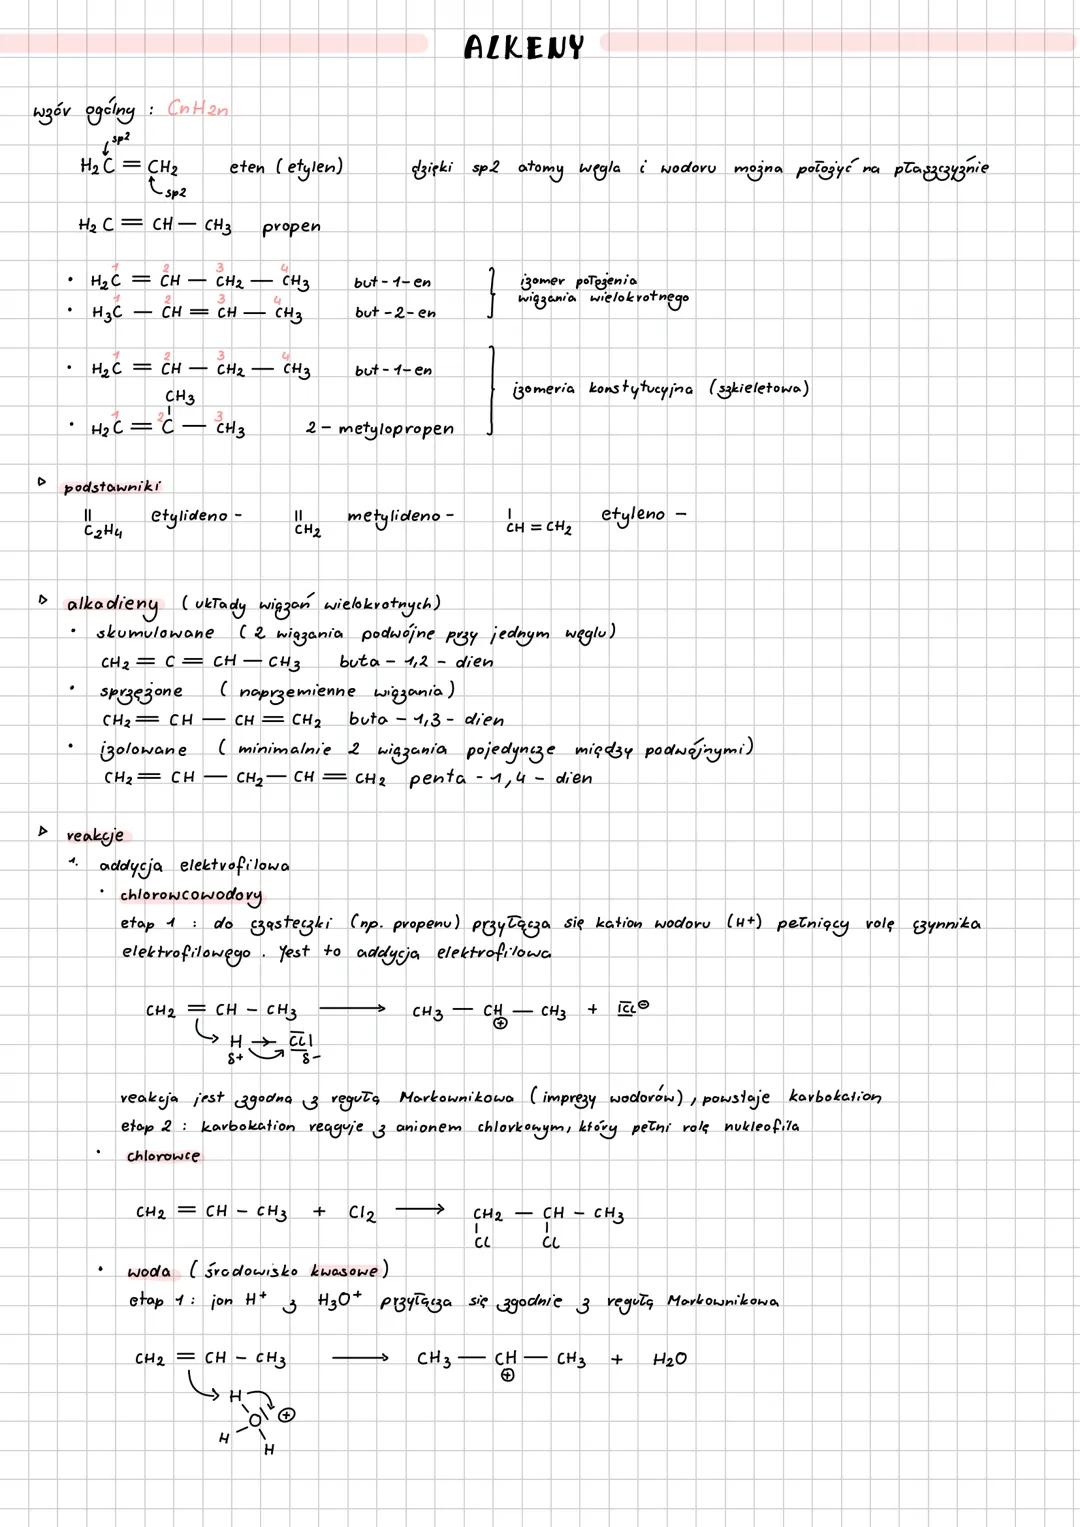 ALKENY
wzór ogólny : CnH2n
sp2
H2C = CH2 eten (etylen) dzięki sp2 atomy węgla i wodoru można położyć na płaszczyźnie
sp2
H2C = CH — CH3 propen
1 2 3 4
• H2C = CH — CH2 — CH3 but-1-en izomer położenia
1 2 3 4 wiązania wielokrotnego
• H3C — CH = CH — CH3 but-2-en
1 2 3 4
• H2C = CH — CH2 — CH3 but-1-en
izomeria konstytucyjna (szkieletowa)
CH3
1 2 3
• H2C = C — CH3 2-metylopropen
▷ podstawniki
C2H4 etylideno- CH2 metylideno- CH = CH2 etyleno-
▷ alkadieny (układy wiązań wielokrotnych)
• skumulowane (2 wiązania podwójne przy jednym węglu)
CH2 = C = CH — CH3 buta-1,2-dien
• sprzężone (naprzemienne wiązania)
CH2 = CH — CH = CH2 buta-1,3-dien
• izolowane (minimalnie 2 wiązania pojedyncze między podwójnymi)
CH2 = CH — CH2 — CH = CH2 penta-1,4-dien
▷ reakcje
1. addycja elektrofilowa
• chlorowcowodory
etap 1 : do cząsteczki (np. propenu) przyłącza się kation wodoru (H+) pełniący rolę czynnika
elektrofilowego. Jest to addycja elektrofilowa
CH2 = CH - CH3 ⟶ CH3 — CH — CH3 + |Cl ⊖
⊕
H → Cl|
δ+ δ-
reakcja jest zgodna z regułą Markownikowa (imprezy wodorów), powstaje karbokation
etap 2 : karbokation reaguje z anionem chlorkowym, który pełni rolę nukleofila
• chlorowce
CH2 = CH - CH3 + Cl2 ⟶ CH2 — CH - CH3
Cl Cl
• woda (środowisko kwasowe)
etap 1: jon H+ z H3O+ przyłącza się zgodnie z regułą Markownikowa
CH2 = CH - CH3 ⟶ CH3 — CH — CH3 + H2O
⊕
H
O ⊕
H
H